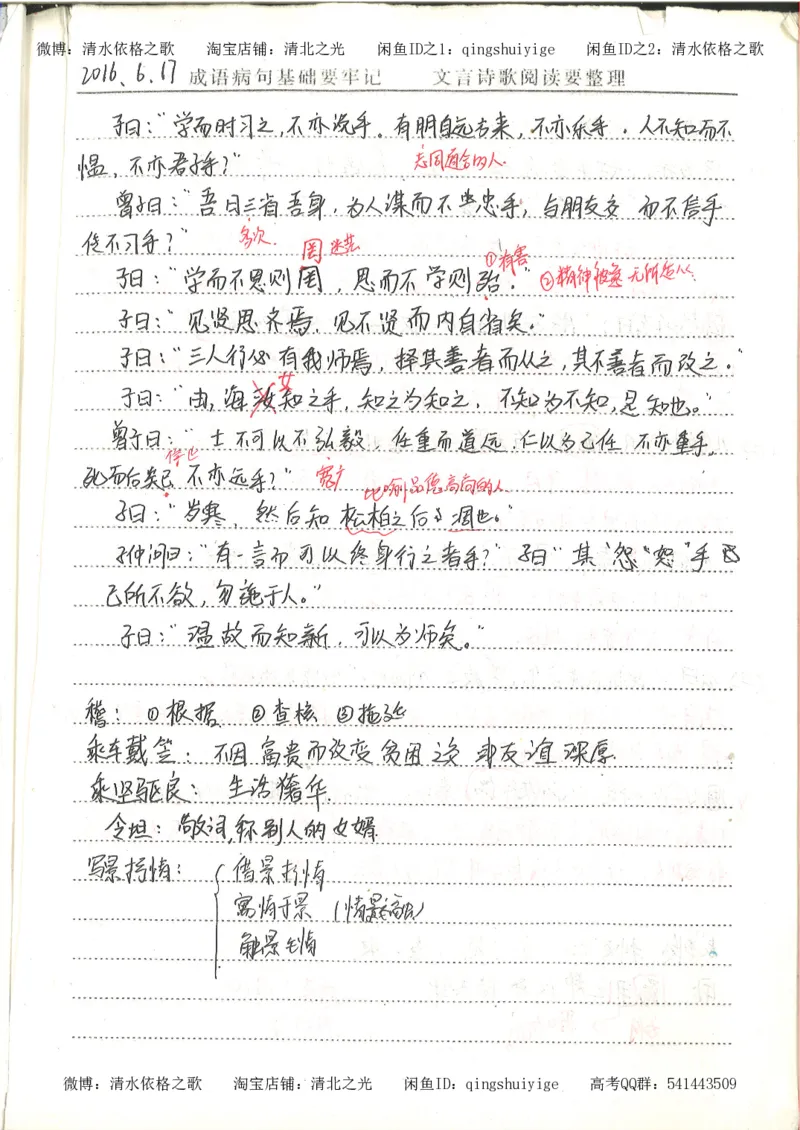 微博：清水依格之歌 淘宝店铺：清北之光 闲鱼ID之1：qingshuiyige 闲鱼ID之2：清水依格之歌
2016、6.17 成语病句基础要牢记 文言诗歌阅读要整理
子曰：“学而时习之，不亦说乎。有朋自远方来，不亦乐乎。人不知而不
愠，不亦君子乎？”
志同道合的人.
曾子曰：“吾日三省吾身，为人谋而不忠乎，与朋友交 而不信乎
传不习乎？”
多次.
罔 迷茫
①有害
子曰：“学而不思则罔，思而不学则殆.”
②精神疲惫 无所适从
子曰：“见贤思齐焉，见不贤而内自省矣.”
子曰：“三人行必有我师焉，择其善者而从之，其不善者而改之。”
女
子曰：“由，诲知之乎，知之为知之，不知为不知，是知也。”
曾子曰：“士不可以不弘毅，任重而道远.仁以为己任 不亦重乎。
停止
死而后已 不亦远乎？”
宽广
比喻品德高尚的人
子曰：“岁寒，然后知松柏之后凋也。”
曰：“有一言而可以终身行之者乎？”子曰“其“恕”乎
己所不欲，勿施于人。”
子曰：“温故而知新，可以为师矣。”
稽：①根据 ②查核 ③拖延
乘车戴笠：不因富贵而改变贫困之交 友谊深厚.
乘坚驱良：生活奢华.
令坦：敬词，称别人的女婿
写景抒情：
借景抒情
寓情于景（情景交融）
触景生情
微博：清水依格之歌 淘宝店铺：清北之光 闲鱼ID：qingshuiyige 高考QQ群：541443509